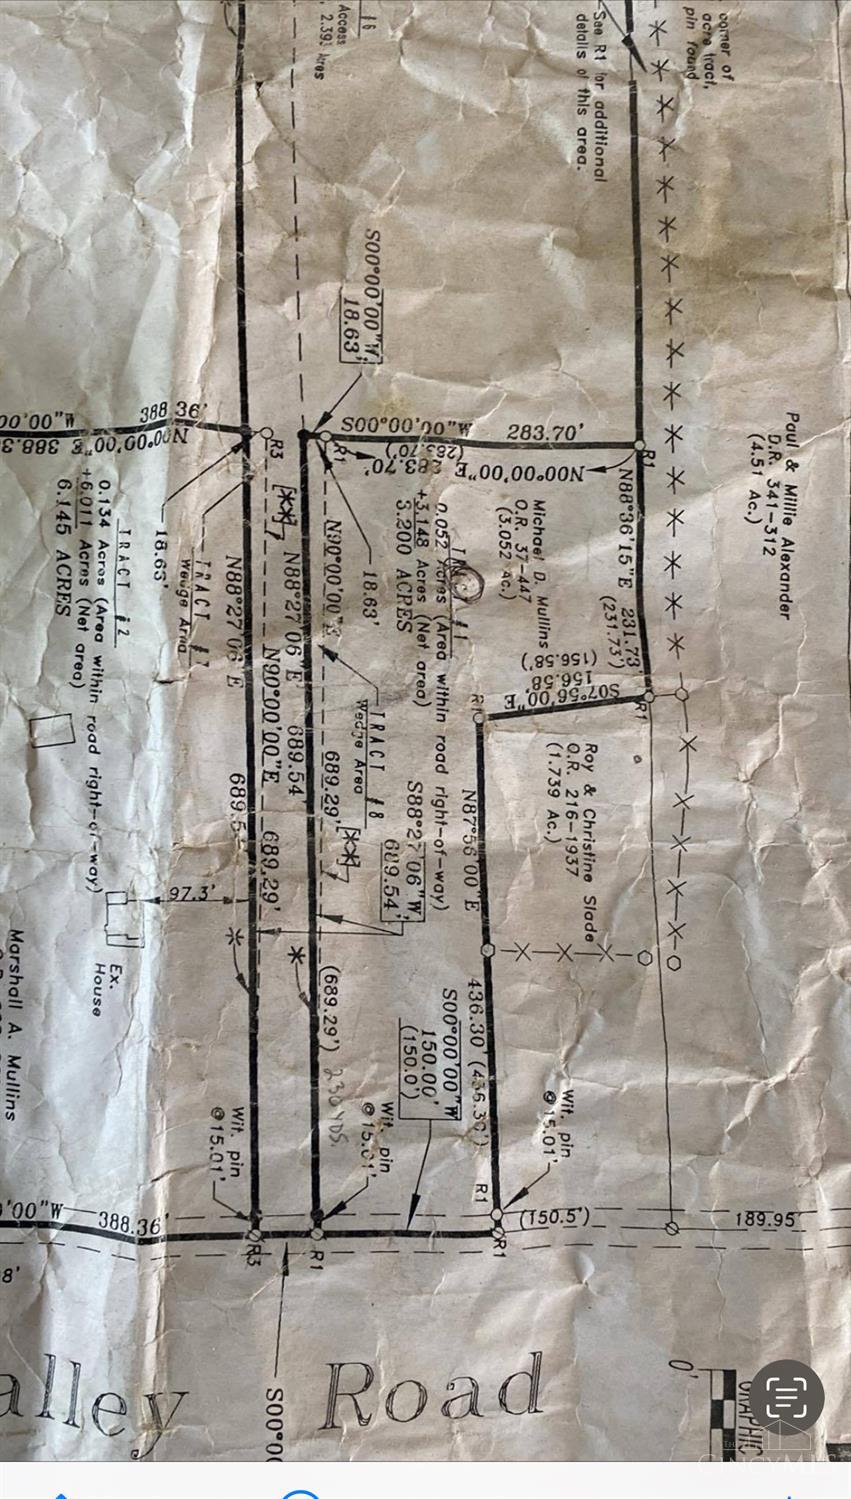 corner of
acre tract,
pin found
See R1 for additional
details of this area.
Access
2.393 Acres
Paul & Millie Alexander
D.R. 341-312
(4.51 Ac.)
S00°00'00"W
18.63'
388.36'
N00°00'00"E
R3
R1
S00°00'00"W
283.70'
(283.70')
N00°00'00"E
283.70'
R1
N88°36'15"E
231.73'
(231.73')
S07°56'00"E
156.58
(156.58')
R1
R1
Michael D. Mullins
O.R. 37-447
(3.052 Ac.)
0.052 Acres (Area within road right-of-way)
+3.148 Acres (Net area)
3.200 ACRES
18.63'
18.63'
[**]
N90°00'00"E
689.29'
[**]
N88°27'06"E
689.54'
TRACT #8
Wedge Area
N90°00'00"E
689.29'
TRACT #7
Wedge Area
N88°27'06"E
TRACT #2
0.134 Acres (Area within road right-of-way)
+6.011 Acres (Net area)
6.145 ACRES
Roy & Christine Slade
O.R. 216-1937
(1.739 Ac.)
N87°56'00"E
436.30' (436.30')
S88°27'06"W
689.54'
97.3'
Ex.
House
Marshall A. Mullins
(689.29')
230 YDS.
S00°00'00"W
150.00'
(150.0')
Wit. pin
@15.01'
Wit. pin
@15.01'
Wit. pin
@15.01'
R1
(150.5')
189.95'
388.36'
R3
R1
R1
alley Road
0'
GRAPHIC
CINCYMLS